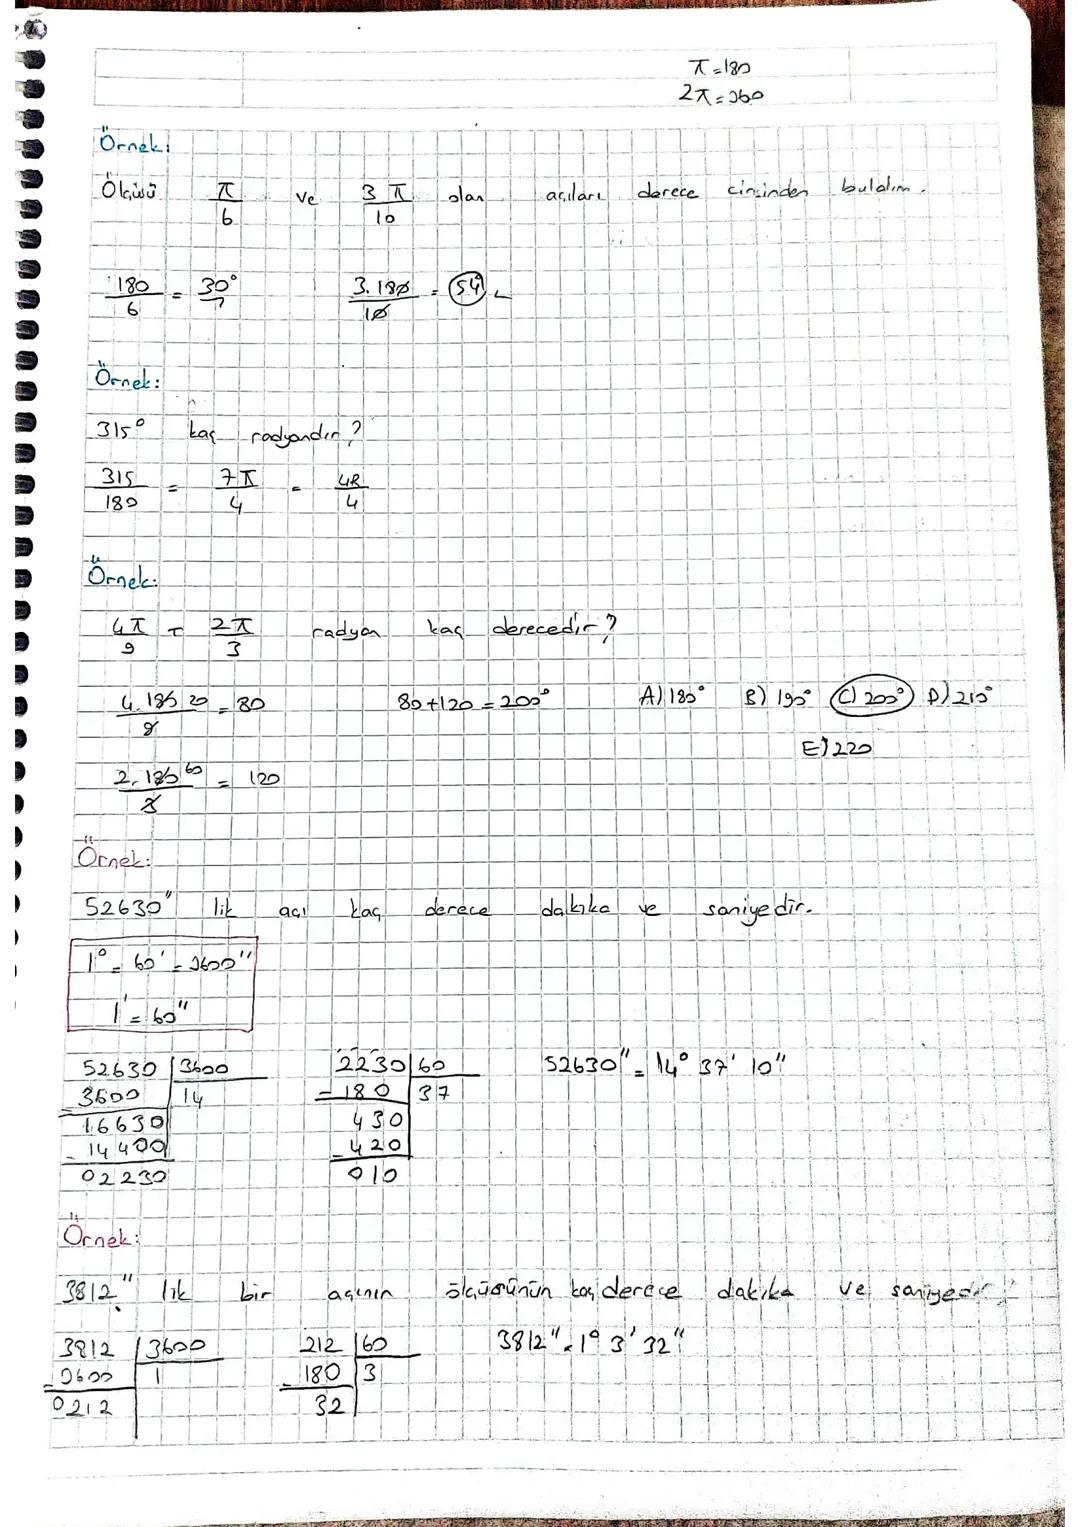 π=180
2π=360
Örnek:
Ölçüsü π/6 ve 3π/10 olan açıları derece cinsinden bulalım.
180/6 = 30° 3.180/10 = 54°
Örnek:
315° kaç radyandır?
315/180 = 7π/4 =
Örnek:
4π/9 + 2π/3 radyan kaç derecedir?
4.180 20/9 = 80 80+120=200° A) 180° B) 190° C) 200° D) 210°
E) 220
2.180 60/3 = 120
Örnek:
52630" lik açı kaç derece dakika ve saniyedir.
1° = 60' = 3600"
1' = 60"
52630 3600 2230 60 52630" = 14° 37' 10"
- 3600 14 - 180 37
16630 430
- 14400 - 420
02230 010
Örnek:
3812" lik bir açının ölçüsünün kaç derece dakika ve saniyedir?
3812 3600 212 60 3812" = 1° 3' 32"
- 3600 1 - 180 3
0212 32